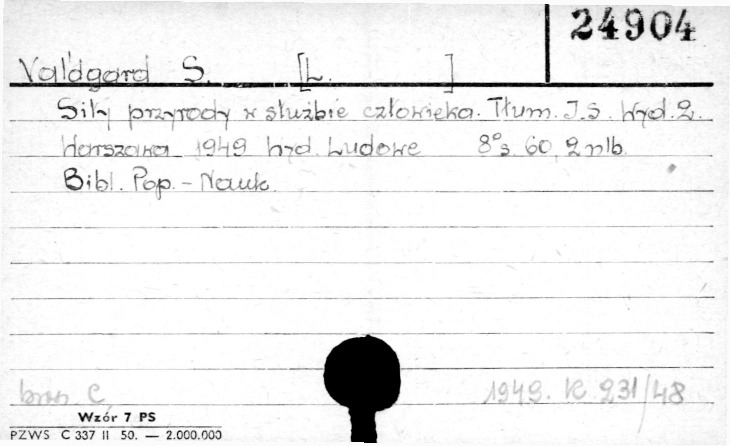 24904
Val'dgard S. [L. ]
Siły przyrody w służbie człowieka. Tłum. J.S. Wyd. 2.
Warszawa 1949 Wyd. Ludowe 8° s. 60, 2 nlb.
Bibl. Pop. - Nauk.
brosz. C. 1949. K 231/48
Wzór 7 PS
PZWS C 337 II 50. — 2.000.000